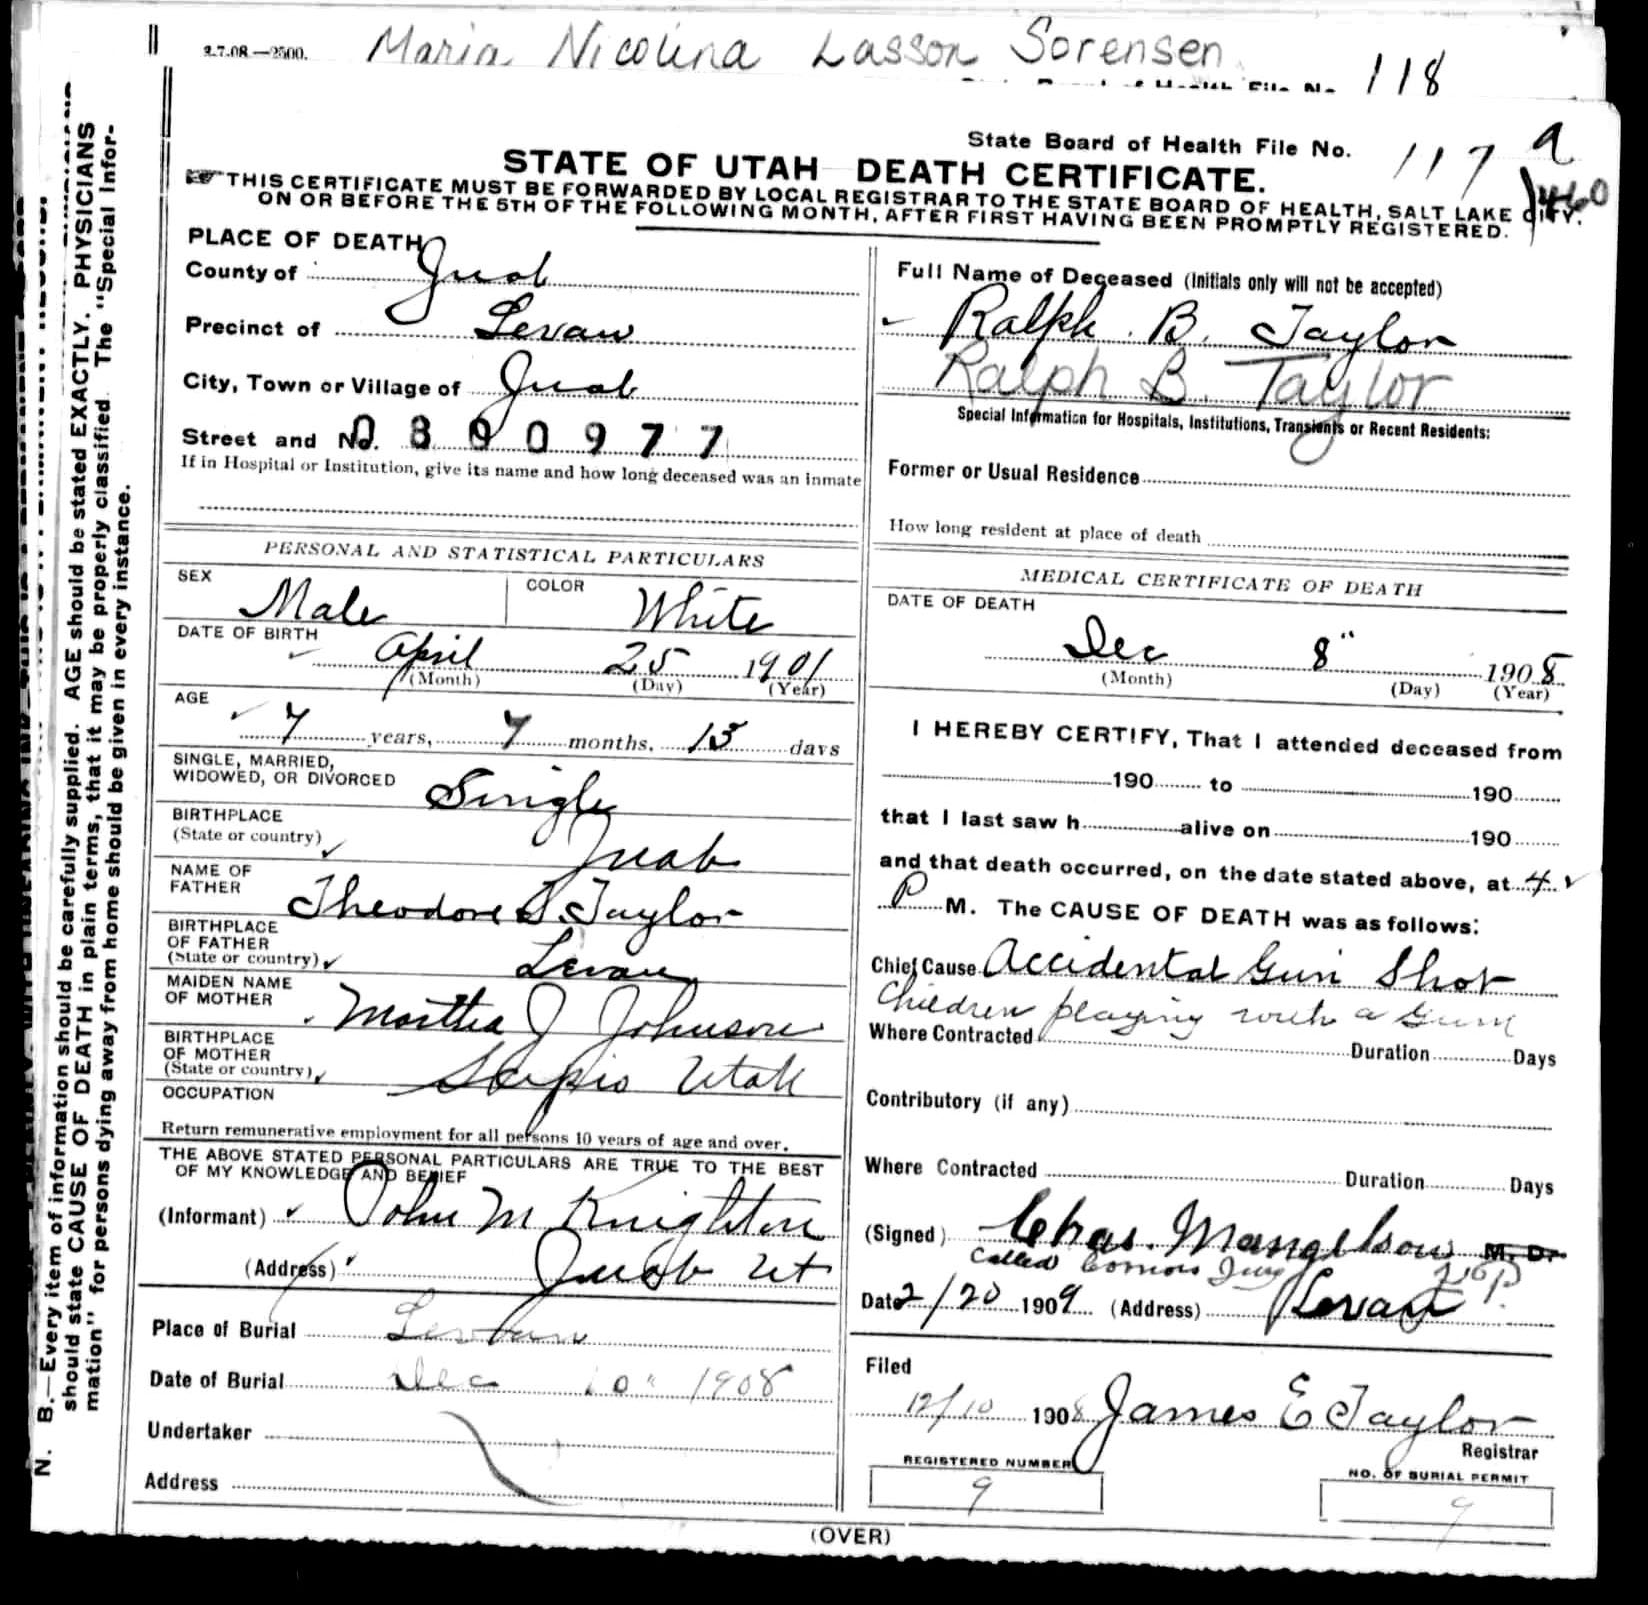 2.7.08.—2500.
Maria Nicolina Lasson Sorensen
118
State Board of Health File No.
117
a
1460
STATE OF UTAH DEATH CERTIFICATE.
THIS CERTIFICATE MUST BE FORWARDED BY LOCAL REGISTRAR TO THE STATE BOARD OF HEALTH, SALT LAKE CITY.
ON OR BEFORE THE 5TH OF THE FOLLOWING MONTH, AFTER FIRST HAVING BEEN PROMPTLY REGISTERED.
N. B.—Every item of information should be carefully supplied. AGE should be stated EXACTLY. PHYSICIANS
should state CAUSE OF DEATH in plain terms, that it may be properly classified. The "Special Infor-
mation" for persons dying away from home should be given in every instance.
PLACE OF DEATH
County of Juab
Precinct of Levan
City, Town or Village of Juab
Street and No. 0300977
If in Hospital or Institution, give its name and how long deceased was an inmate
PERSONAL AND STATISTICAL PARTICULARS
SEX Male COLOR White
DATE OF BIRTH
April 25 1901
(Month) (Day) (Year)
AGE
7 years, 7 months, 13 days
SINGLE, MARRIED,
WIDOWED, OR DIVORCED Single
BIRTHPLACE
(State or country) Juab
NAME OF
FATHER Theodore Taylor
BIRTHPLACE
OF FATHER
(State or country) Levan
MAIDEN NAME
OF MOTHER Martha J Johnson
BIRTHPLACE
OF MOTHER
(State or country) Scipio Utah
OCCUPATION
Return remunerative employment for all persons 10 years of age and over.
THE ABOVE STATED PERSONAL PARTICULARS ARE TRUE TO THE BEST
OF MY KNOWLEDGE AND BELIEF
(Informant) John M Knighton
(Address) Juab Ut
Place of Burial Levan
Date of Burial Dec 10" 1908
Undertaker
Address
Full Name of Deceased (Initials only will not be accepted)
Ralph B. Taylor
Ralph B. Taylor
Special Information for Hospitals, Institutions, Transients or Recent Residents:
Former or Usual Residence
How long resident at place of death
MEDICAL CERTIFICATE OF DEATH
DATE OF DEATH
Dec 8" 1908
(Month) (Day) (Year)
I HEREBY CERTIFY, That I attended deceased from
190 to 190
that I last saw h alive on 190
and that death occurred, on the date stated above, at 4
P M. The CAUSE OF DEATH was as follows:
Chief Cause Accidental Gun Shot
Children playing with a Gun
Where Contracted Duration Days
Contributory (if any)
Where Contracted Duration Days
(Signed) Chas. Mangelson M. D.
Called
J. P.
Date 2/20 1909 (Address) Levan
Filed
12/10 1908 James E Taylor
Registrar
REGISTERED NUMBER
9
NO. OF BURIAL PERMIT
9
(OVER)